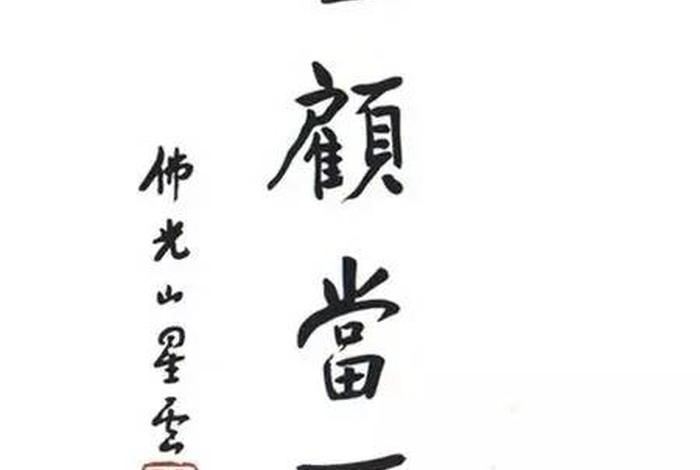 顧當
佛光山星雲